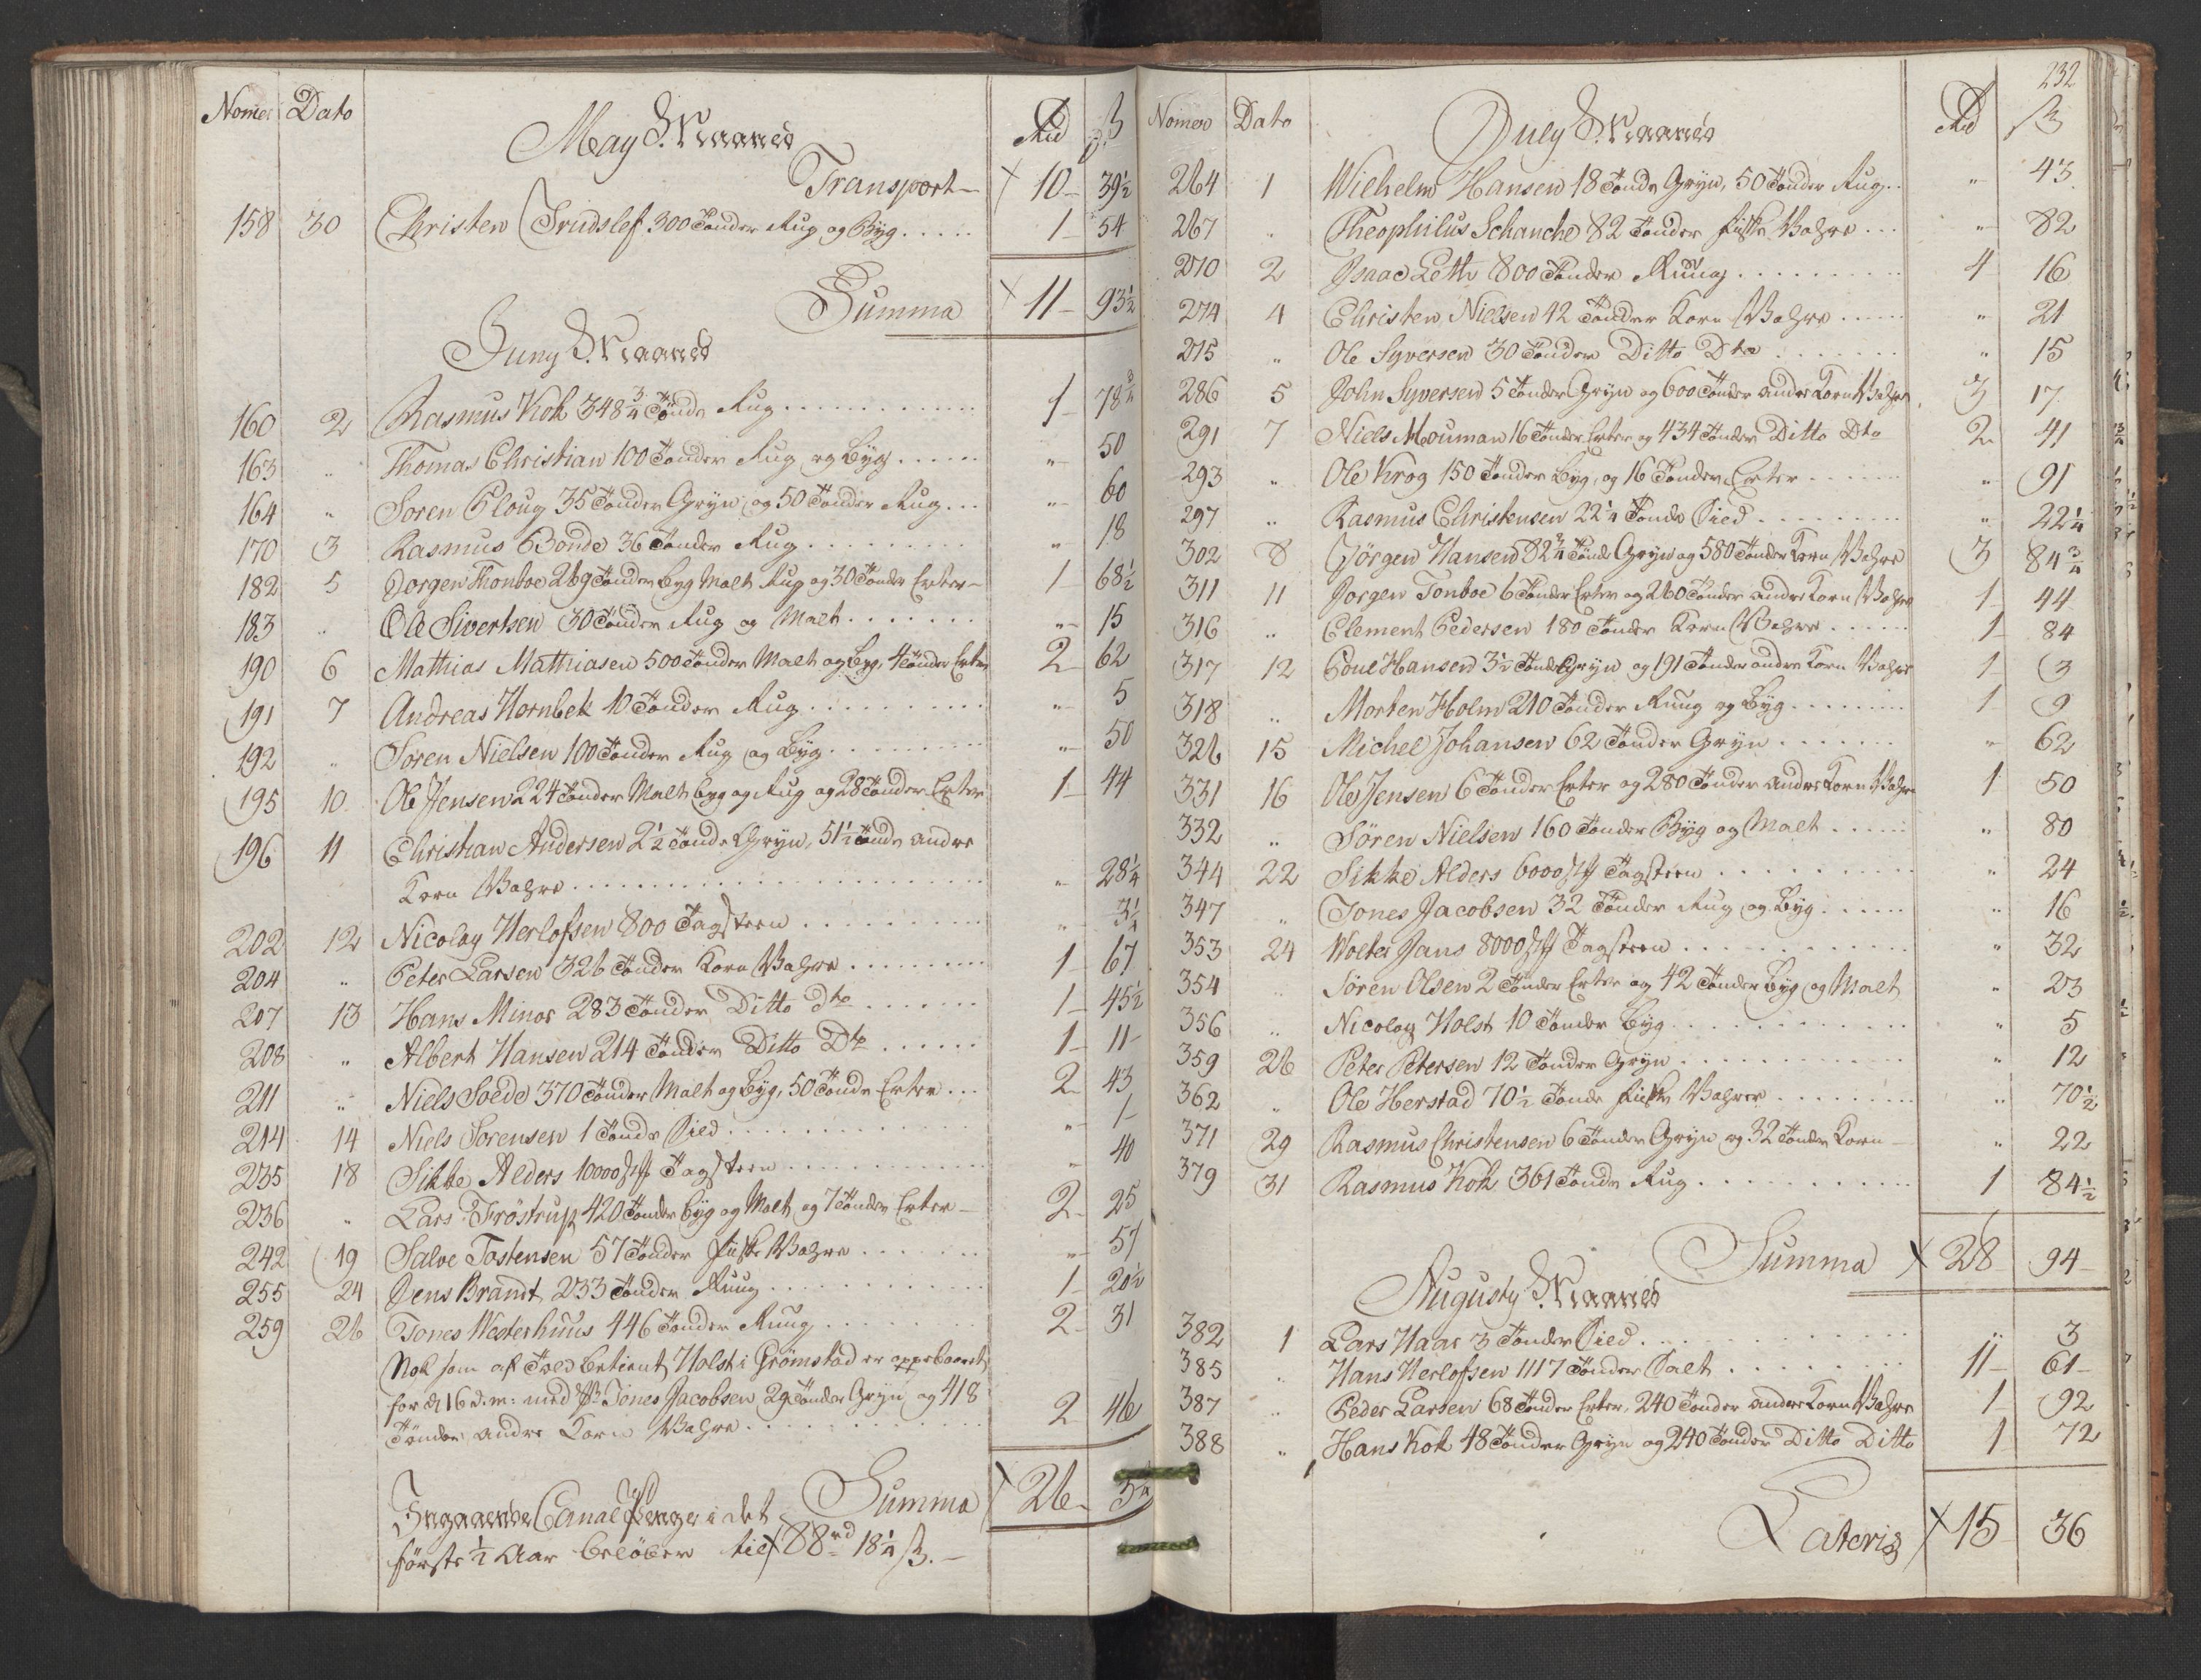 Nomer Dato May Maaned Rd ß
Transport 10 39½
158 30 Christen Trudslef 300 Tønder Rug og Byg 1 54
Summa 11 93½
Juny Maaned
160 2 Rasmus Kok 348¾ Tønde Rug 1 78¾
163 " Thomas Christian 100 Tønder Rug og Byg " 50
164 " Soren Ploug 35 Tønder Gryn og 50 Tønder Rug " 60
170 3 Rasmus Bonde 36 Tønder Rug " 18
182 5 Jorgen Thonboe 269 Tønder Byg Malt Rug og 30 Tønder Erter 1 68½
183 " Ole Sivertsen 30 Tønder Rug og Malt " 15
190 6 Mathias Mathiasen 500 Tønder Malt og Byg, 4 Tønder Erter 2 62
191 7 Andreas Hornbek 10 Tønder Rug " 5
192 " Søren Nielsen 100 Tønder Rug og Byg " 50
195 10 Ole Jensen 224 Tønder Malt Byg og Rug og 28 Tønder Erter 1 44
196 11 Christian Andersen 2½ Tønde Gryn, 51½ Tønde andre
Korn Vahre " 28¼
202 12 Nicolay Herlofsen 800 Tagsteen " 3¼
204 " Peter Larsen 326 Tønder Korn Vahre 1 67
207 13 Hans Minor 283 Tønder Ditto dto 1 45½
208 " Albert Hansen 214 Tønder Ditto Dto 1 11
211 " Niels Soede 370 Tønder Malt og Byg, 50 Tønde Erter 2 43
214 14 Niels Sorensen 1 Tønde Sild " 1
235 18 Sikke Alders 10000 Stk Tagsteen " 40
236 " Lars Trøstrup 420 Tønder Byg og Malt og 7 Tønder Erter 2 25
242 19 Salve Tostensen 57 Tønder fiske Vahre " 57
255 24 Jens Brandt 233 Tønder Ruug 1 20½
259 26 Tones Westerhuus 446 Tønder Ruug 2 31
Nok som af Told betient Holst i Grømstad er oppebaaret
for d 16 d. m: med Sr Tones Jacobsen 29 Tønder Gryn og 418
Tønder andre Korn Vahre 2 46
Summa 26 5¼
Indgaaende Canal Penge i det
første ½ Aar beløber til 88 rd 18¼ ß.
232
Nomer Dato July Maaned Rd ß
264 1 Wilhelm Hansen 18 Tønde Gryn, 50 Tønder Rug " 43
267 " Theophilus Schanche 82 Tønder fiske Vahre " 82
270 2 Isaac Leth 800 Tønder Ruug 4 16
274 4 Christen Nielsen 42 Tønder Korn Vahre " 21
275 " Ole Syversen 30 Tønder Ditto Dto " 15
286 5 John Syversen 5 Tønder Gryn og 600 Tønder andre Korn Vahre 3 17
291 7 Niels Mouman 16 Tønder Erter og 434 Tønder Ditto Dto 2 41
293 " Ole Krog 150 Tønder Byg, og 16 Tønder Erter " 91
297 " Rasmus Christensen 22¼ Tønde Sild " 22¼
302 8 Jørgen Hansen 82¾ Tønde Gryn og 580 Tønder Korn Vahre 3 84¾
311 11 Jorgen Tonboe 6 Tønder Erter og 260 Tønder andre Korn Vahre 1 44
316 " Clement Pedersen 180 Tønder Korn Vahre 1 84
317 12 Poul Hansen 3½ Tønde Gryn og 191 Tønder andre Korn Vahre 1 3
318 " Morten Holm 210 Tønder Ruug og Byg 1 9
326 15 Michel Johansen 62 Tønder Gryn " 62
331 16 Ole Jensen 6 Tønder Erter og 280 Tønder andre Korn Vahre 1 50
332 " Søren Nielsen 160 Tønder Byg og Malt " 80
344 22 Sikke Alders 6000 Stk Tagsteen " 24
347 " Tones Jacobsen 32 Tønder Rug og Byg " 16
353 24 Wolter Jans 8000 Stk Tagsteen " 32
354 " Søren Olsen 2 Tønder Erter og 42 Tønder Byg og Malt " 23
356 " Nicolay Holst 10 Tønder Byg " 5
359 26 Peter Petersen 12 Tønder Gryn " 12
362 " Ole Herstad 70½ Tønde fiske Vahrer " 70½
371 29 Rasmus Christensen 6 Tønder Gryn og 32 Tønder Korn " 22
379 31 Rasmus Kok 361 Tønde Rug 1 84½
Summa 28 94
Augusty Maaned
382 1 Lars Haar 3 Tønder Sild " 3
385 " Hans Herlofsen 1117 Tønder Salt 11 61
387 " Peder Larsen 68 Tønder Erter, 240 Tønder andre Korn Vahre 1 92
388 " Hans Kok 48 Tønder Gryn og 240 Tønder Ditto Ditto 1 72
Lateris 15 36